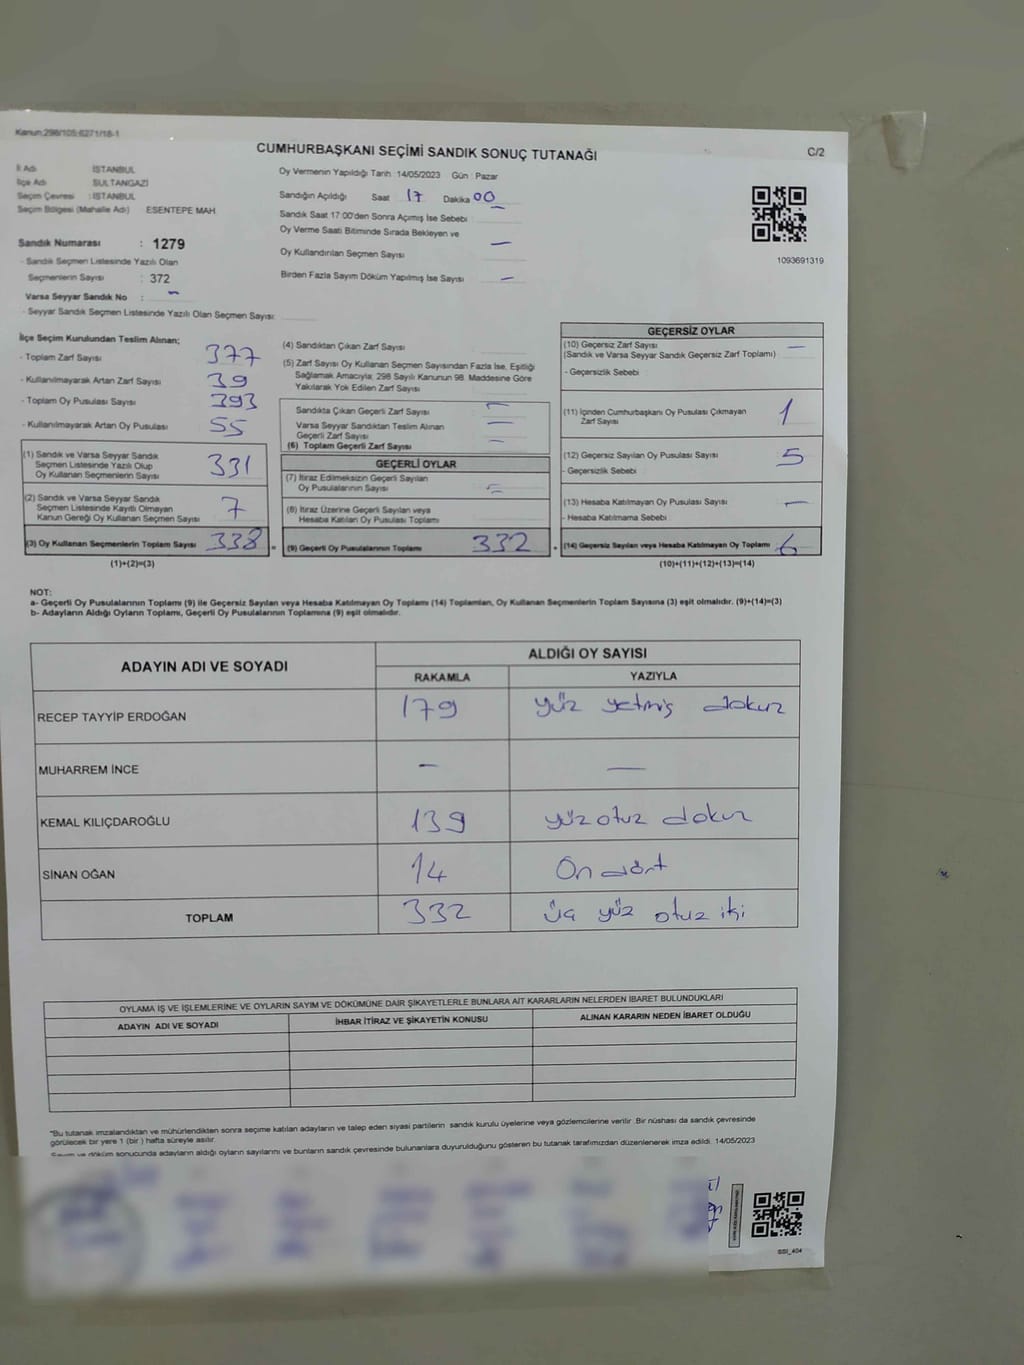 Kanun:298/105;6271/18-1
CUMHURBAŞKANI SEÇİMİ SANDIK SONUÇ TUTANAĞI
C/2
İl Adı : İSTANBUL
İlçe Adı : SULTANGAZİ
Seçim Çevresi : İSTANBUL
Seçim Bölgesi (Mahalle Adı) ESENTEPE MAH.
Sandık Numarası : 1279
- Sandık Seçmen Listesinde Yazılı Olan
Seçmenlerin Sayısı : 372
Varsa Seyyar Sandık No : -
- Seyyar Sandık Seçmen Listesinde Yazılı Olan Seçmen Sayısı:
Oy Vermenin Yapıldığı Tarih :14/05/2023 Gün : Pazar
Sandığın Açıldığı Saat 17 Dakika 00
Sandık Saat 17:00'den Sonra Açımış İse Sebebi
Oy Verme Saati Bitiminde Sırada Bekleyen ve
Oy Kullandırılan Seçmen Sayısı -
Birden Fazla Sayım Döküm Yapılmış İse Sayısı -
1093691319
İlçe Seçim Kurulundan Teslim Alınan;
- Toplam Zarf Sayısı 377
- Kullanılmayarak Artan Zarf Sayısı 39
- Toplam Oy Pusulası Sayısı 393
- Kullanılmayarak Artan Oy Pusulası 55
(1) Sandık ve Varsa Seyyar Sandık
Seçmen Listesinde Yazılı Olup
Oy Kullanan Seçmenlerin Sayısı 331
(2) Sandık ve Varsa Seyyar Sandık
Seçmen Listesinde Kayıtlı Olmayan
Kanun Gereği Oy Kullanan Seçmen Sayısı 7
(3) Oy Kullanan Seçmenlerin Toplam Sayısı 338 =
(1)+(2)=(3)
(4) Sandıktan Çıkan Zarf Sayısı
(5) Zarf Sayısı Oy Kullanan Seçmen Sayısından Fazla İse, Eşitliği
Sağlamak Amacıyla; 298 Sayılı Kanunun 98. Maddesine Göre
Yakılarak Yok Edilen Zarf Sayısı
Sandıkta Çıkan Geçerli Zarf Sayısı -
Varsa Seyyar Sandıktan Teslim Alınan
Geçerli Zarf Sayısı -
(6) Toplam Geçerli Zarf Sayısı -
GEÇERLİ OYLAR
(7) İtiraz Edilmeksizin Geçerli Sayılan
Oy Pusulalarının Sayısı
(8) İtiraz Üzerine Geçerli Sayılan veya
Hesaba Katılan Oy Pusulası Toplamı
(9) Geçerli Oy Pusulalarının Toplamı 332 +
GEÇERSİZ OYLAR
(10) Geçersiz Zarf Sayısı -
(Sandık ve Varsa Seyyar Sandık Geçersiz Zarf Toplamı)
- Geçersizlik Sebebi
(11) İçinden Cumhurbaşkanı Oy Pusulası Çıkmayan
Zarf Sayısı 1
(12) Geçersiz Sayılan Oy Pusulası Sayısı 5
- Geçersizlik Sebebi
(13) Hesaba Katılmayan Oy Pusulası Sayısı -
- Hesaba Katılmama Sebebi
(14) Geçersiz Sayılan veya Hesaba Katılmayan Oy Toplamı 6
(10)+(11)+(12)+(13)=(14)
NOT:
a- Geçerli Oy Pusulalarının Toplamı (9) ile Geçersiz Sayılan veya Hesaba Katılmayan Oy Toplamı (14) Toplamları, Oy Kullanan Seçmenlerin Toplam Sayısına (3) eşit olmalıdır. (9)+(14)=(3)
b- Adayların Aldığı Oyların Toplamı, Geçerli Oy Pusulalarının Toplamına (9) eşit olmalıdır.
ADAYIN ADI VE SOYADI ALDIĞI OY SAYISI
RAKAMLA YAZIYLA
RECEP TAYYİP ERDOĞAN 179 yüz yetmiş dokuz
MUHARREM İNCE - -
KEMAL KILIÇDAROĞLU 139 yüz otuz dokuz
SİNAN OĞAN 14 On dört
TOPLAM 332 üç yüz otuz iki
OYLAMA İŞ VE İŞLEMLERİNE VE OYLARIN SAYIM VE DÖKÜMÜNE DAİR ŞİKAYETLERLE BUNLARA AİT KARARLARIN NELERDEN İBARET BULUNDUKLARI
ADAYIN ADI VE SOYADI İHBAR İTİRAZ VE ŞİKAYETİN KONUSU ALINAN KARARIN NEDEN İBARET OLDUĞU
"Bu tutanak imzalandıktan ve mühürlendikten sonra seçime katılan adayların ve talep eden siyasi partilerin sandık kurulu üyelerine veya gözlemcilerine verilir. Bir nüshası da sandık çevresinde
görülecek bir yere 1 (bir ) hafta süreyle asılır.
Sayım ve döküm sonucunda adayların aldığı oyların sayılarını ve bunların sandık çevresinde bulunanlara duyurulduğunu gösteren bu tutanak tarafımızdan düzenlenerek imza edildi. 14/05/2023
SSI_404